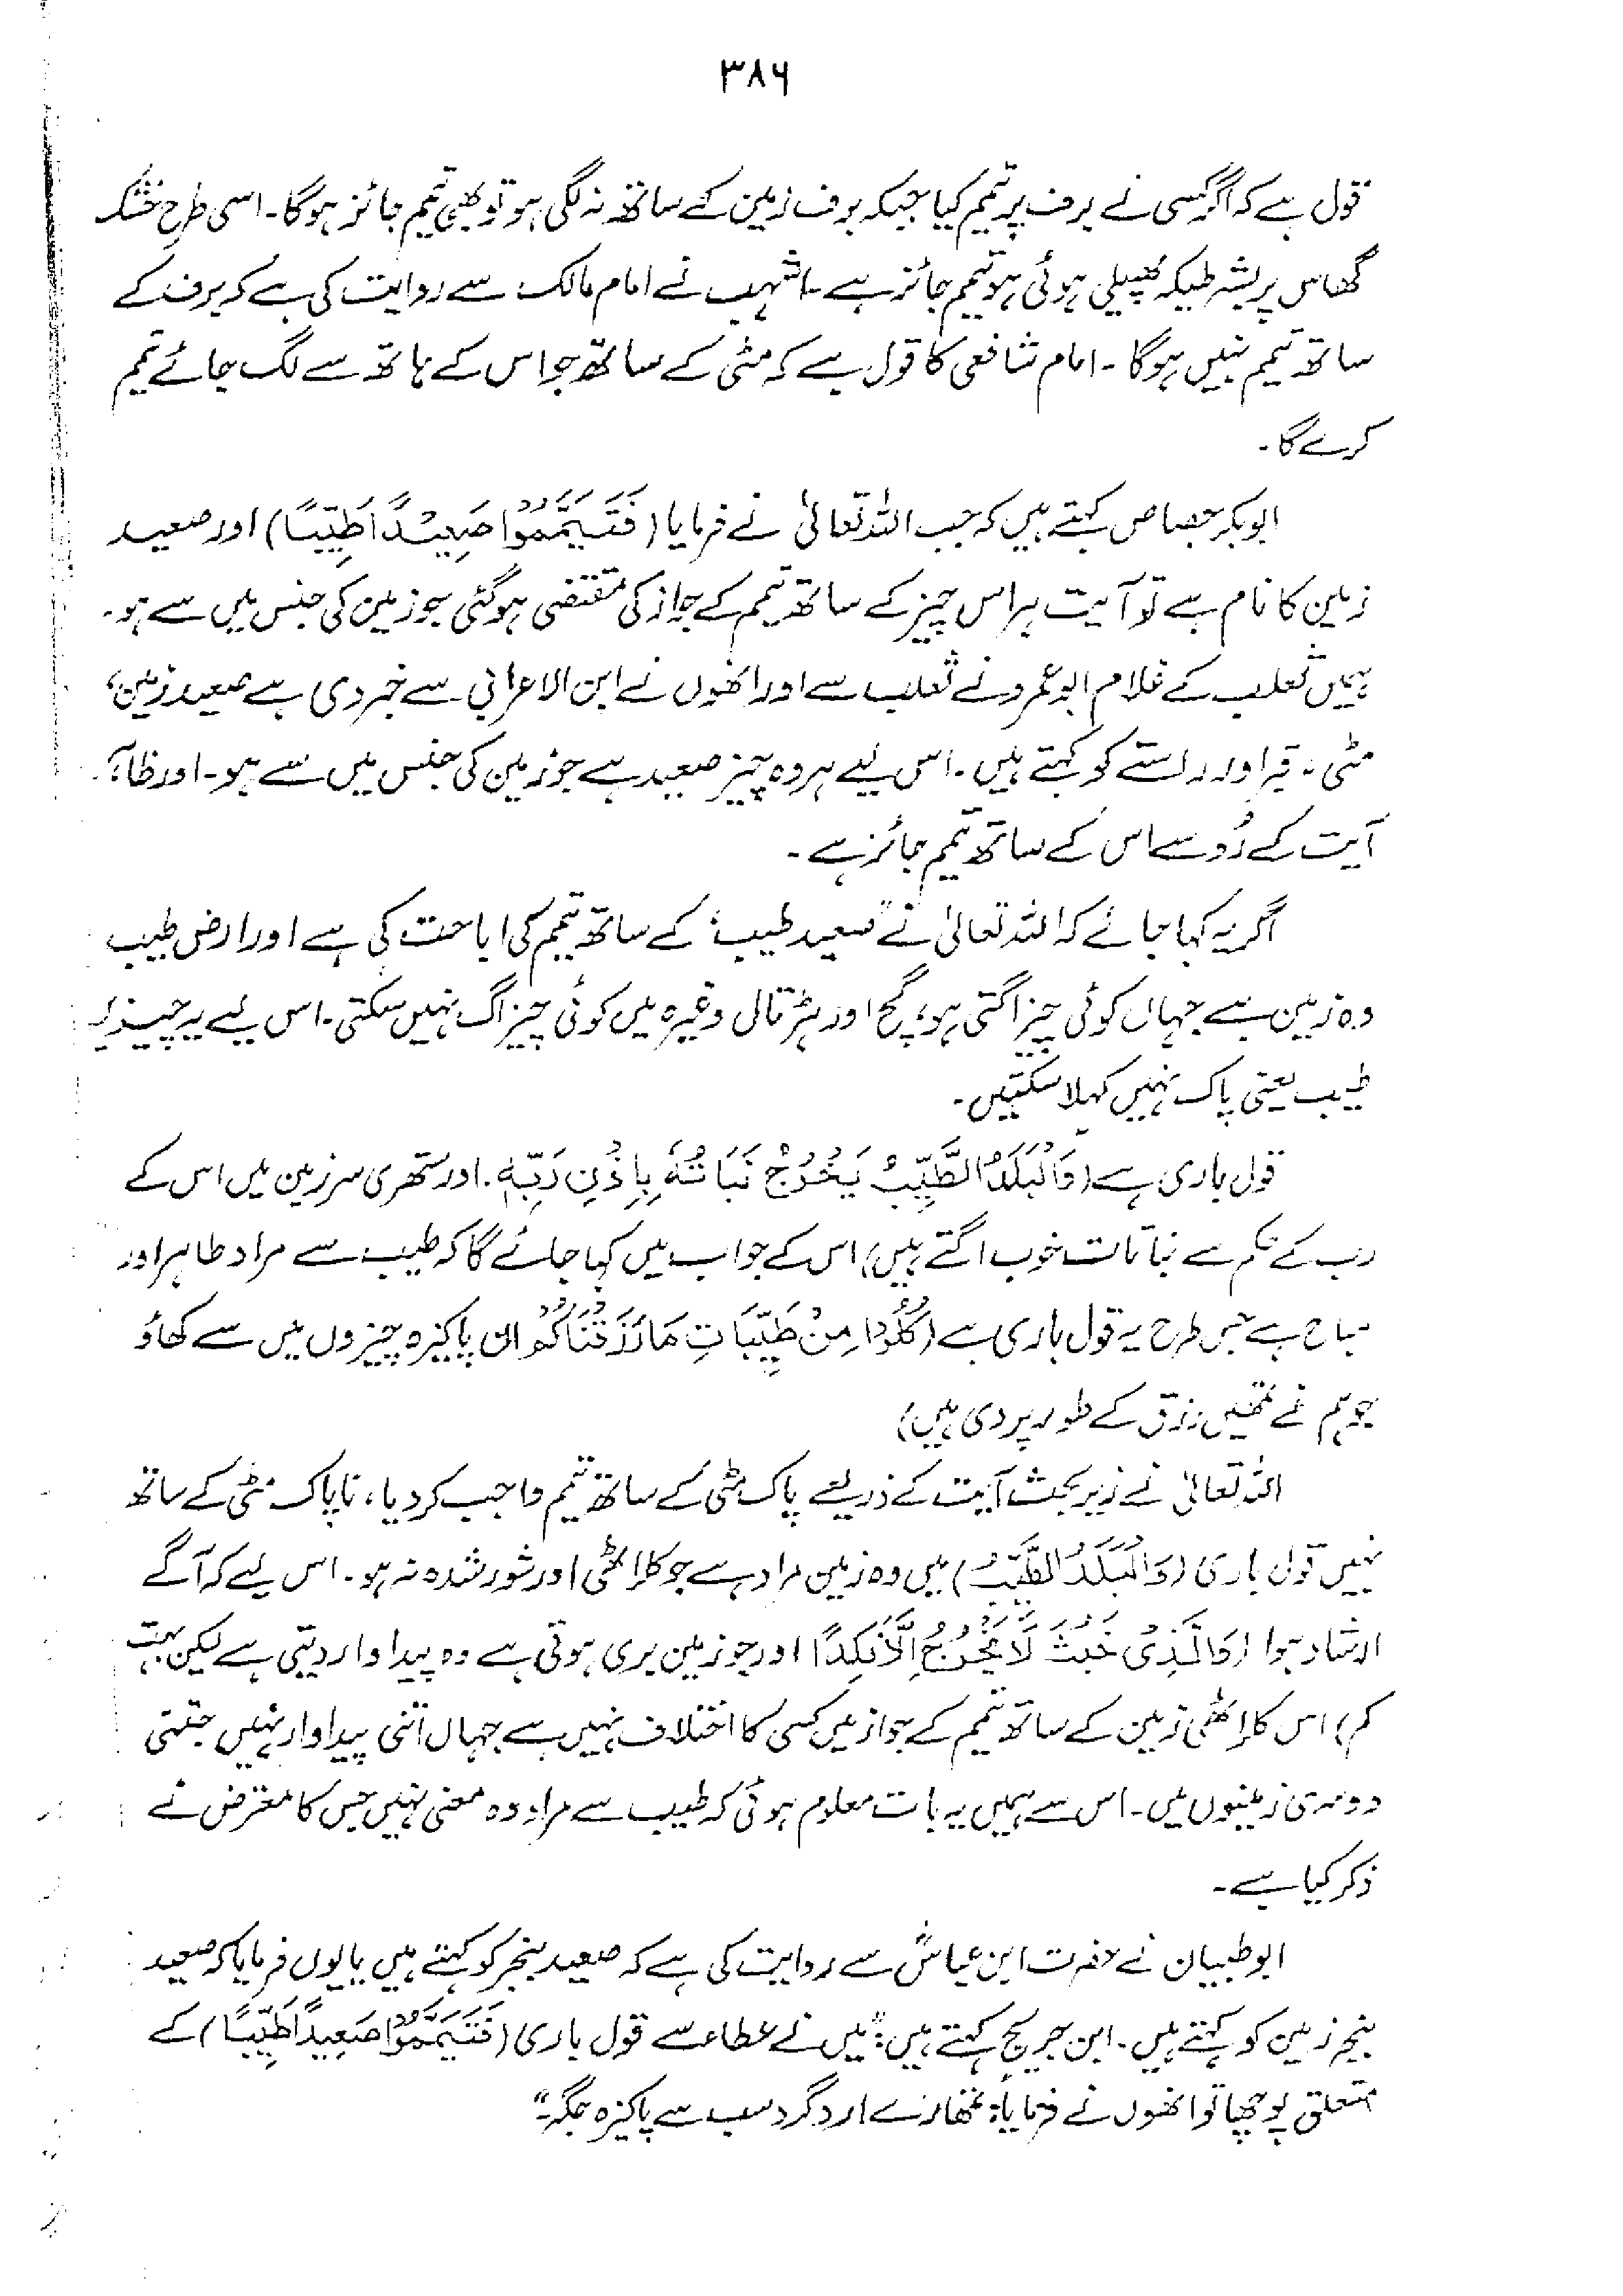 ۳۸۶
قول ہے کہ اگر کسی نے برف پر تیمم کیا جبکہ برف زمین کے ساتھ نہ لگی ہو تو بھی تیمم جائز ہوگا۔ اسی طرح خشک
گھاس پر بشرطیکہ پھیلی ہوئی ہو تیمم جائز ہے۔ اشہب نے امام مالک سے روایت کی ہے کہ برف کے
ساتھ تیمم نہیں ہوگا۔ امام شافعی کا قول ہے کہ مٹی کے ساتھ جو اس کے ہاتھ سے لگ جائے تیمم
کرے گا۔
ابوبکر جصاص کہتے ہیں کہ جب اللہ تعالیٰ نے فرمایا (فَتَيَمَّمُوْا صَعِيْدًا طَيِّبًا) اور صعید
زمین کا نام ہے تو آیت ہر اس چیز کے ساتھ تیمم کے جواز کی مقتضی ہوگئی جو زمین کی جنس میں سے ہو۔
ہمیں ثعلب کے غلام ابو عمرو نے ثعلب سے اور انھوں نے ابن الاعرابی سے خبر دی ہے صعید زمین،
مٹی، قبر اور راستے کو کہتے ہیں۔ اس لیے ہر وہ چیز صعید ہے جو زمین کی جنس میں سے ہو۔ اور ظاہر
آیت کے رُو سے اس کے ساتھ تیمم جائز ہے۔
اگر یہ کہا جائے کہ اللہ تعالیٰ نے "صعید طیب" کے ساتھ تیمم کی اباحت کی ہے اور ارض طیب
وہ زمین ہے جہاں کوئی چیز اگتی ہو، گچ اور ہڑتال وغیرہ میں کوئی چیز اگ نہیں سکتی۔ اس لیے یہ چیزیں
طیب یعنی پاک نہیں کہلا سکتیں۔
قول باری ہے (وَالْبَلَدُ الطَّيِّبُ يَخْرُجُ نَبَاتُهُ بِاِذْنِ رَبِّهٖ۔ اور ستھری سرزمین میں اس کے
رب کے حکم سے نباتات خوب اگتے ہیں) اس کے جواب میں کہا جائے گا کہ طیب سے مراد طاہر اور
مباح ہے جس طرح یہ قول باری ہے (كُلُوْا مِنْ طَيِّبَاتِ مَا رَزَقْنَاكُمْ ان پاکیزہ چیزوں میں سے کھاؤ
جو ہم نے تمھیں رزق کے طور پر دی ہیں)
اللہ تعالیٰ نے زیر بحث آیت کے ذریعے پاک مٹی کے ساتھ تیمم واجب کردیا، ناپاک مٹی کے ساتھ
نہیں قول باری (وَالْبَلَدُ الطَّيِّبُ) میں وہ زمین مراد ہے جو کلراٹھی اور شور شدہ نہ ہو۔ اس لیے کہ آگے
ارشاد ہوا (وَالَّذِىْ خَبُثَ لَا يَخْرُجُ اِلَّا نَكِدًا اور جو زمین بری ہوتی ہے وہ پیداوار دیتی ہے لیکن بہت
کم) اس کلراٹھی زمین کے ساتھ تیمم کے جواز میں کسی کا اختلاف نہیں ہے جہاں اتنی پیداوار نہیں جتنی
دوسری زمینوں میں۔ اس سے ہمیں یہ بات معلوم ہوئی کہ طیب سے مراد وہ معنی نہیں جس کا معترض نے
ذکر کیا ہے۔
ابو ظبیان نے حضرت ابن عباسؓ سے روایت کی ہے کہ صعید بنجر کو کہتے ہیں یا یوں فرمایا کہ صعید
بنجر زمین کو کہتے ہیں۔ ابن جریج کہتے ہیں: "میں نے عطاء سے قول باری (فَتَيَمَّمُوْا صَعِيدًا طَيِّبًا) کے
متعلق پوچھا تو انھوں نے فرمایا: تمھارے ارد گرد سب سے پاکیزہ جگہ۔"